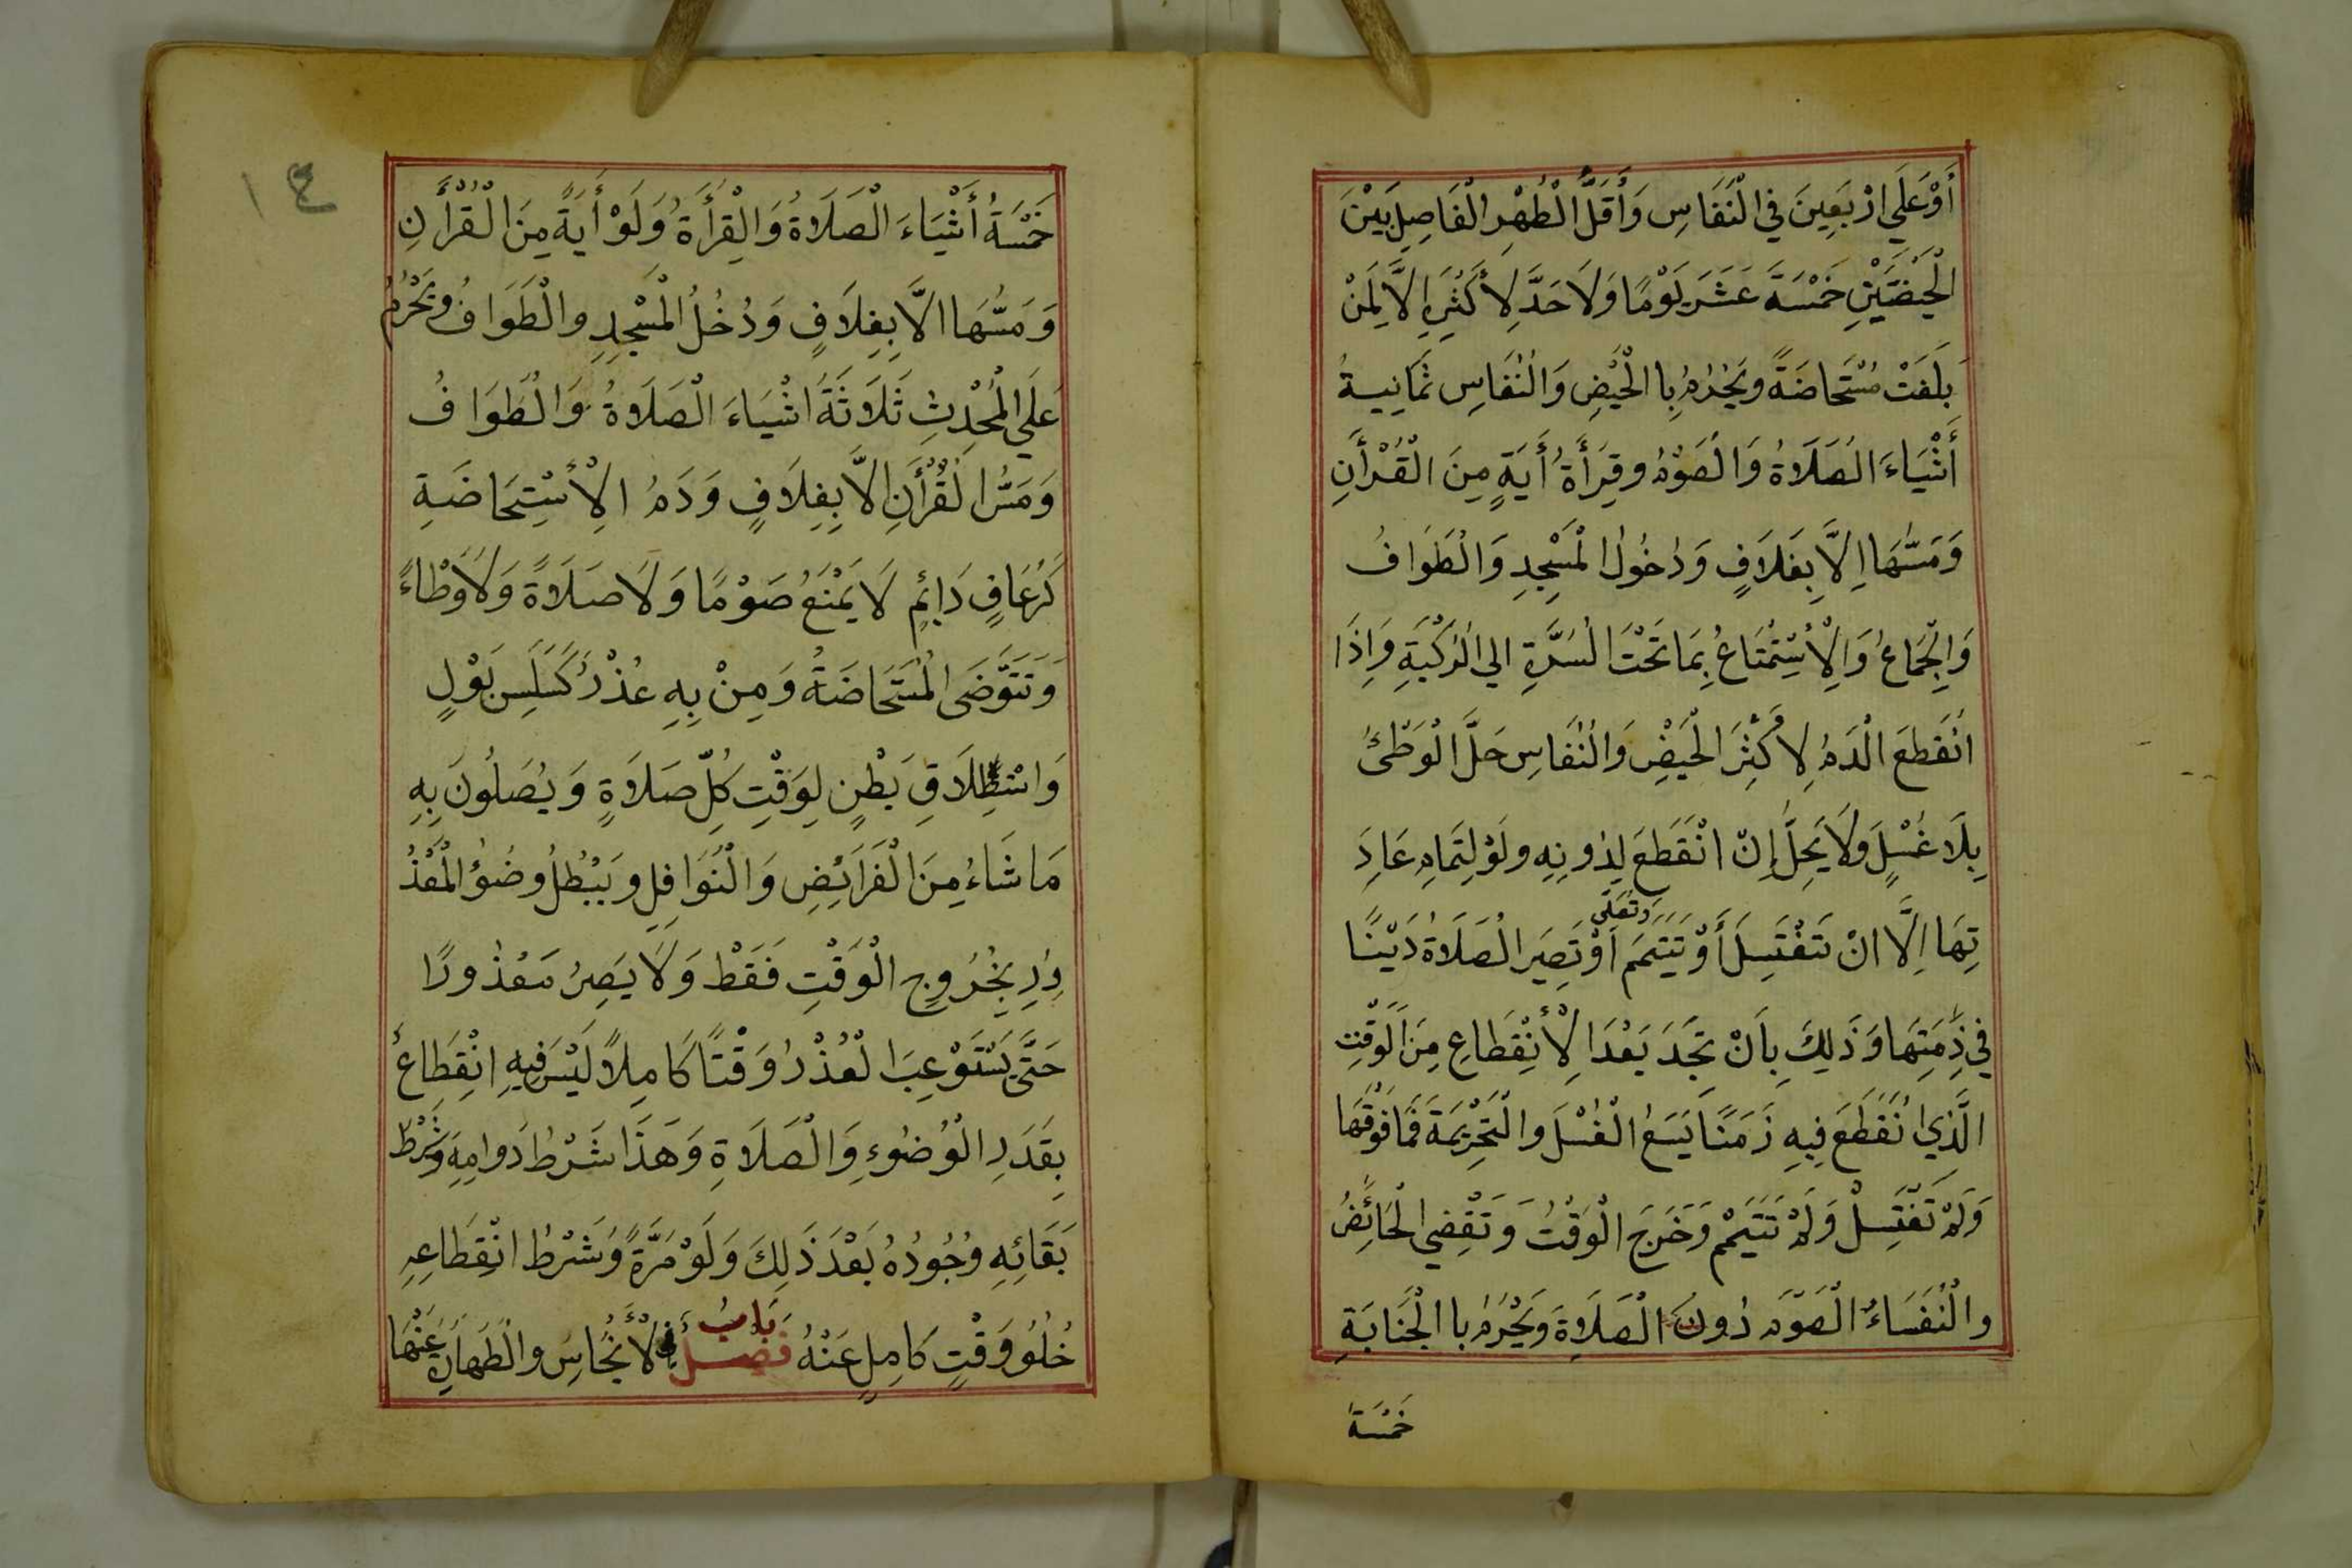 أَوْ عَلَي ارْبَعِينَ فِي الْنَفَاسِ وَأَقَلُّ الْطُهْرِ الْفَاصِلِ بَيْنَ
الْحَيْضَتَيْنِ خَمْسَةَ عَشَرَ يَوْمًا وَلَا حَدَّ لِأَكْثَرِهِ الاَّ لِمَنْ
بَلَغَتْ مُسْتَحَاضَةً ويَحْرُمُ بِا الْحَيْضِ وَالْنُفَاسِ ثَمَانِيةُ
أَشْيَاءَ الصَلَاةُ وَالْصَوْمُ وقِرَأَةُ أَيَةٍ مِنَ الْقُرْأَنِ
وَمَسَّهَا اِلاَّ بِغَلاَفٍ وَدُخُولُ الْمَسْجِدِ وَالْطَوَافُ
وَالْجِمَاعُ وَالْاِسْتِمْتَاعُ بِمَا تَحْتَ الْسُرَّةِ الي الْرُكْبَةِ وَاِذَا
انْقَطَعَ الْدَمُ لِاكْثَرِ الْحَيْضِ وَالْنُفَاسِ حَلَّ الْوَطْئُ
بِلَا غَسْلٍ وَلَا يَحِلُّ إِنْ انْقَطَعَ لِدُونِهِ ولَوْ لِتَمَامِ عَادِ
تِهَا اِلَّا انْ تَغْتَسِلَ أَوْ تَتَيَمَّمَ وتصَلّي اَوْ تَصِيَر الْصَلَاةُ دَيْنًا
في ذِمَّتِهَا وَذَلِكَ بِأَنْ تَجِدَ بَعْدَ الْاِنْقِطَاعِ مِنَ الْوَقْتِ
الَّذِي انْقَطَعَ فِيهِ زَمَنًا يَسَعُ الْغُسْلَ والْتَحْرِيْمَةَ فَمَا فَوْقَهَا
وَلَمْ تَغْتَسِلْ وَلَمْ تَتَيَمَّمْ وَخَرَجَ الْوَقْتُ وَتَقْضِي الْحَائِضُ
والْنُفَسَاءُ الْصَوْمَ دُونَ الْصَلَاةِ وَيَحْرُمُ با الْجَنَابَةِ
خَمْسَة
١٤
خَمْسَةُ أَشْيَاءَ الْصَلَاةُ وَالْقِرْأَةُ وَلَوْ أَيَةً مِنَ الْقُرْأَنِ
وَمَسُّهَا الاَّ بِغِلاَفٍ وَدُخُلُ الْمَسْجِدِ والْطَوَافُ وَيَحْرُمُ
عَلَي الْمُحْدِثِ ثَلَاثَةُ اشْيَاءَ الْصَلَاةُ وَالْطَوَافُ
وَمَسُّ الْقُرْأَنِ الاَّ بِغِلَافٍ وَدَمُ الْاِسْتِحَاضَةِ
كَرُعَافٍ دَائِمٍ لَا يَمْنَعُ صَوْمًا وَلَا صَلَاةً وَلَا وَطْاءً
وَتَتَوَّضَى الْمُسْتَحَاضَةُ وَمِنْ بِهِ عُذْرٌ كَسَلِسِ بَوْلٍ
وَاسْتِطْلَاقِ بَطْنٍ لِوَقْتِ كِلّ صَلَاةٍ وَيُصَلُونَ بِهِ
مَا شَاءُ مِنَ الْفَرَائِضِ وَالْنُوَافِلِ وَيَبْطُلُ وضُؤُ الْمَعْذُ
وْرِ بِخُرُوجِ الْوَقْتِ فَقَطْ وَلَا يَصِرُ مَعْذُورًا
حَتَّى يَسْتَوْعِبَ الْعُذْرُ وَقْتًا كَامِلاً لَيْسَ فِيهِ انْقِطَاعٌ
بِقَدَرِ الْوُضُوءِ وَالْصَلَاةِ وَهَذَا شَرْطُ دَوامِهِ وَشَرْطُ
بَقَائِهِ وُجُودُهُ بَعْدَ ذَلِكَ وَلَوْ مَرَّةً وُشَرْطُ انْقِطَاعِهِ
خُلُوُ وَقْتٍ كَامِلٍ عَنْهُ بَابُ فَصْلُ في الْأَنْجَاسِ والْطَهَارَةِ عَنْهَا